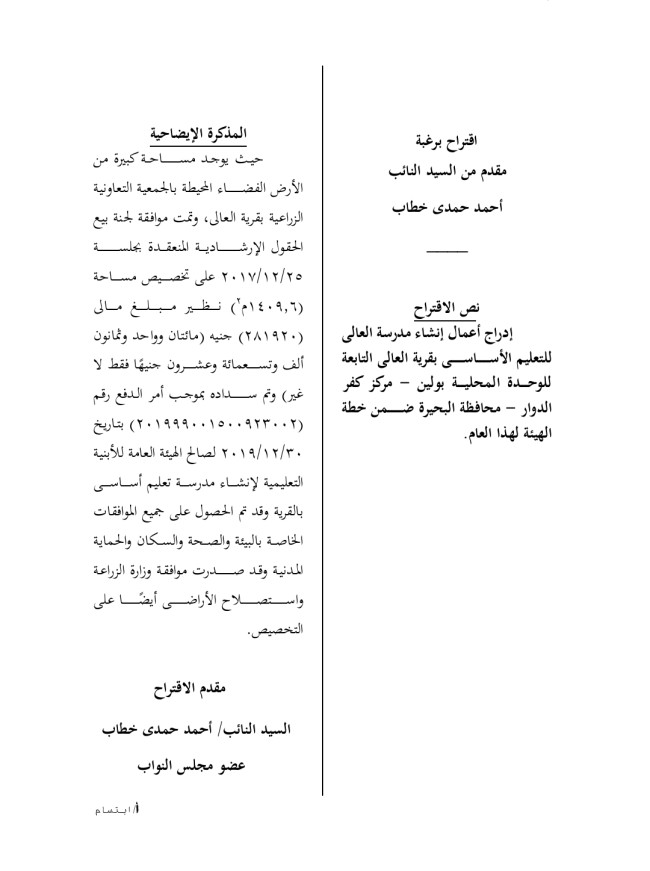 اقتراح برغبة
مقدم من السيد النائب
أحمد حمدى خطاب
نص الاقتراح
إدراج أعمال إنشاء مدرسة العالى
للتعليم الأساسى بقرية العالى التابعة
للوحدة المحلية بولين – مركز كفر
الدوار – محافظة البحيرة ضمن خطة
الهيئة لهذا العام.
المذكرة الإيضاحية
حيث يوجد مساحة كبيرة من
الأرض الفضاء المحيطة بالجمعية التعاونية
الزراعية بقرية العالى، وتمت موافقة لجنة بيع
الحقول الإرشادية المنعقدة بجلسة
٢٠١٧/١٢/٢٥ على تخصيص مساحة
(١٤٠٩,٦م٢) نظير مبلغ مالى
(٢٨١٩٢٠) جنيه (مائتان وواحد وثمانون
ألف وتسعمائة وعشرون جنيهًا فقط لا
غير) وتم سداده بموجب أمر الدفع رقم
(٢٠١٩٩٩٠٠١٥٠٠٩٢٣٠٠٢) بتاريخ
٢٠١٩/١٢/٣٠ لصالح الهيئة العامة للأبنية
التعليمية لإنشاء مدرسة تعليم أساسى
بالقرية وقد تم الحصول على جميع الموافقات
الخاصة بالبيئة والصحة والسكان والحماية
المدنية وقد صدرت موافقة وزارة الزراعة
واستصلاح الأراضى أيضًا على
التخصيص.
مقدم الاقتراح
السيد النائب/ أحمد حمدى خطاب
عضو مجلس النواب
أ/ ابتسام